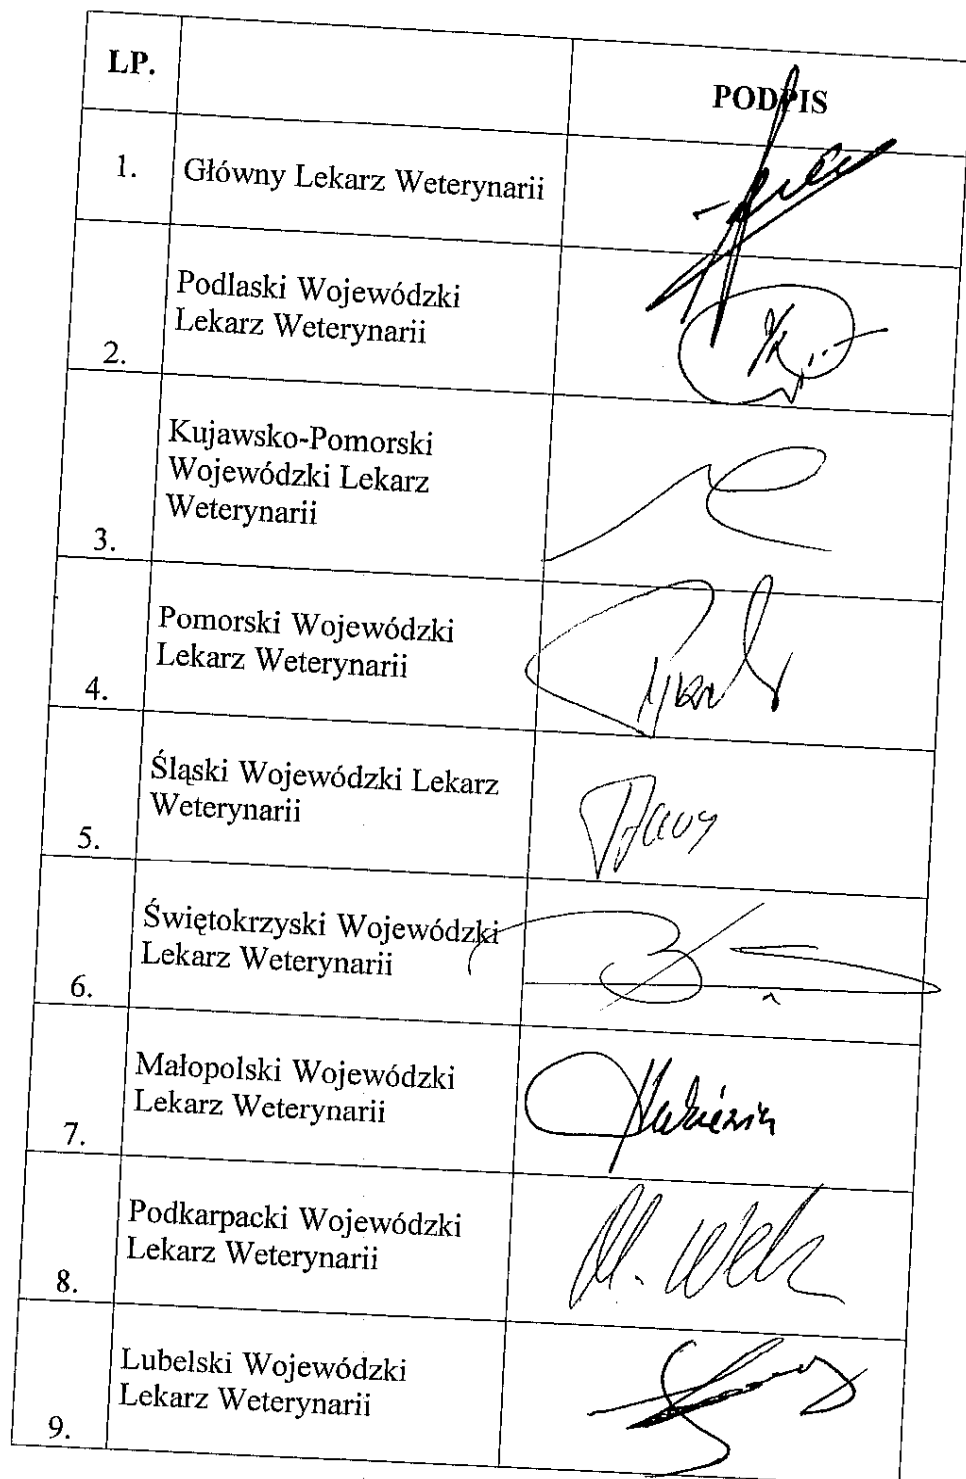 LP. PODPIS
1. Główny Lekarz Weterynarii
Podlaski Wojewódzki
Lekarz Weterynarii
2.
Kujawsko-Pomorski
Wojewódzki Lekarz
Weterynarii
3.
Pomorski Wojewódzki
Lekarz Weterynarii
4.
Śląski Wojewódzki Lekarz
Weterynarii
5.
Świętokrzyski Wojewódzki
Lekarz Weterynarii
6.
Małopolski Wojewódzki
Lekarz Weterynarii
7.
Podkarpacki Wojewódzki
Lekarz Weterynarii
8.
Lubelski Wojewódzki
Lekarz Weterynarii
9.